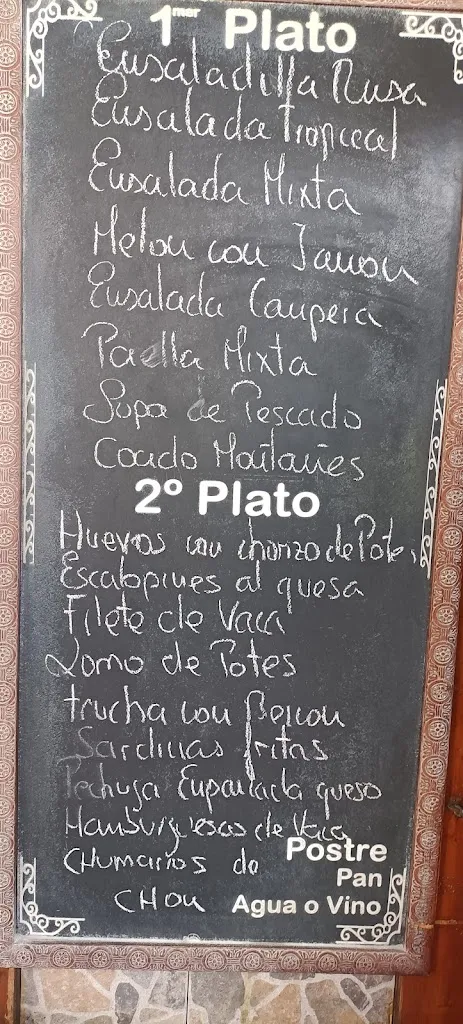 1mer Plato
Ensaladilla Rusa
Ensalada Tropical
Ensalada Mixta
Melon con Jamon
Ensalada Campera
Paella Mixta
Sopa de Pescado
Cocido Montañes
2º Plato
Huevos con chorizo de Potes
Escalopines al quesa
Filete de Vaca
Lomo de Potes
trucha con Beicon
Sardinas fritas
Pechuga Empanada queso
Hamburguesas de Vaca
Postre
CHumarros de
Pan
CHon
Agua o Vino